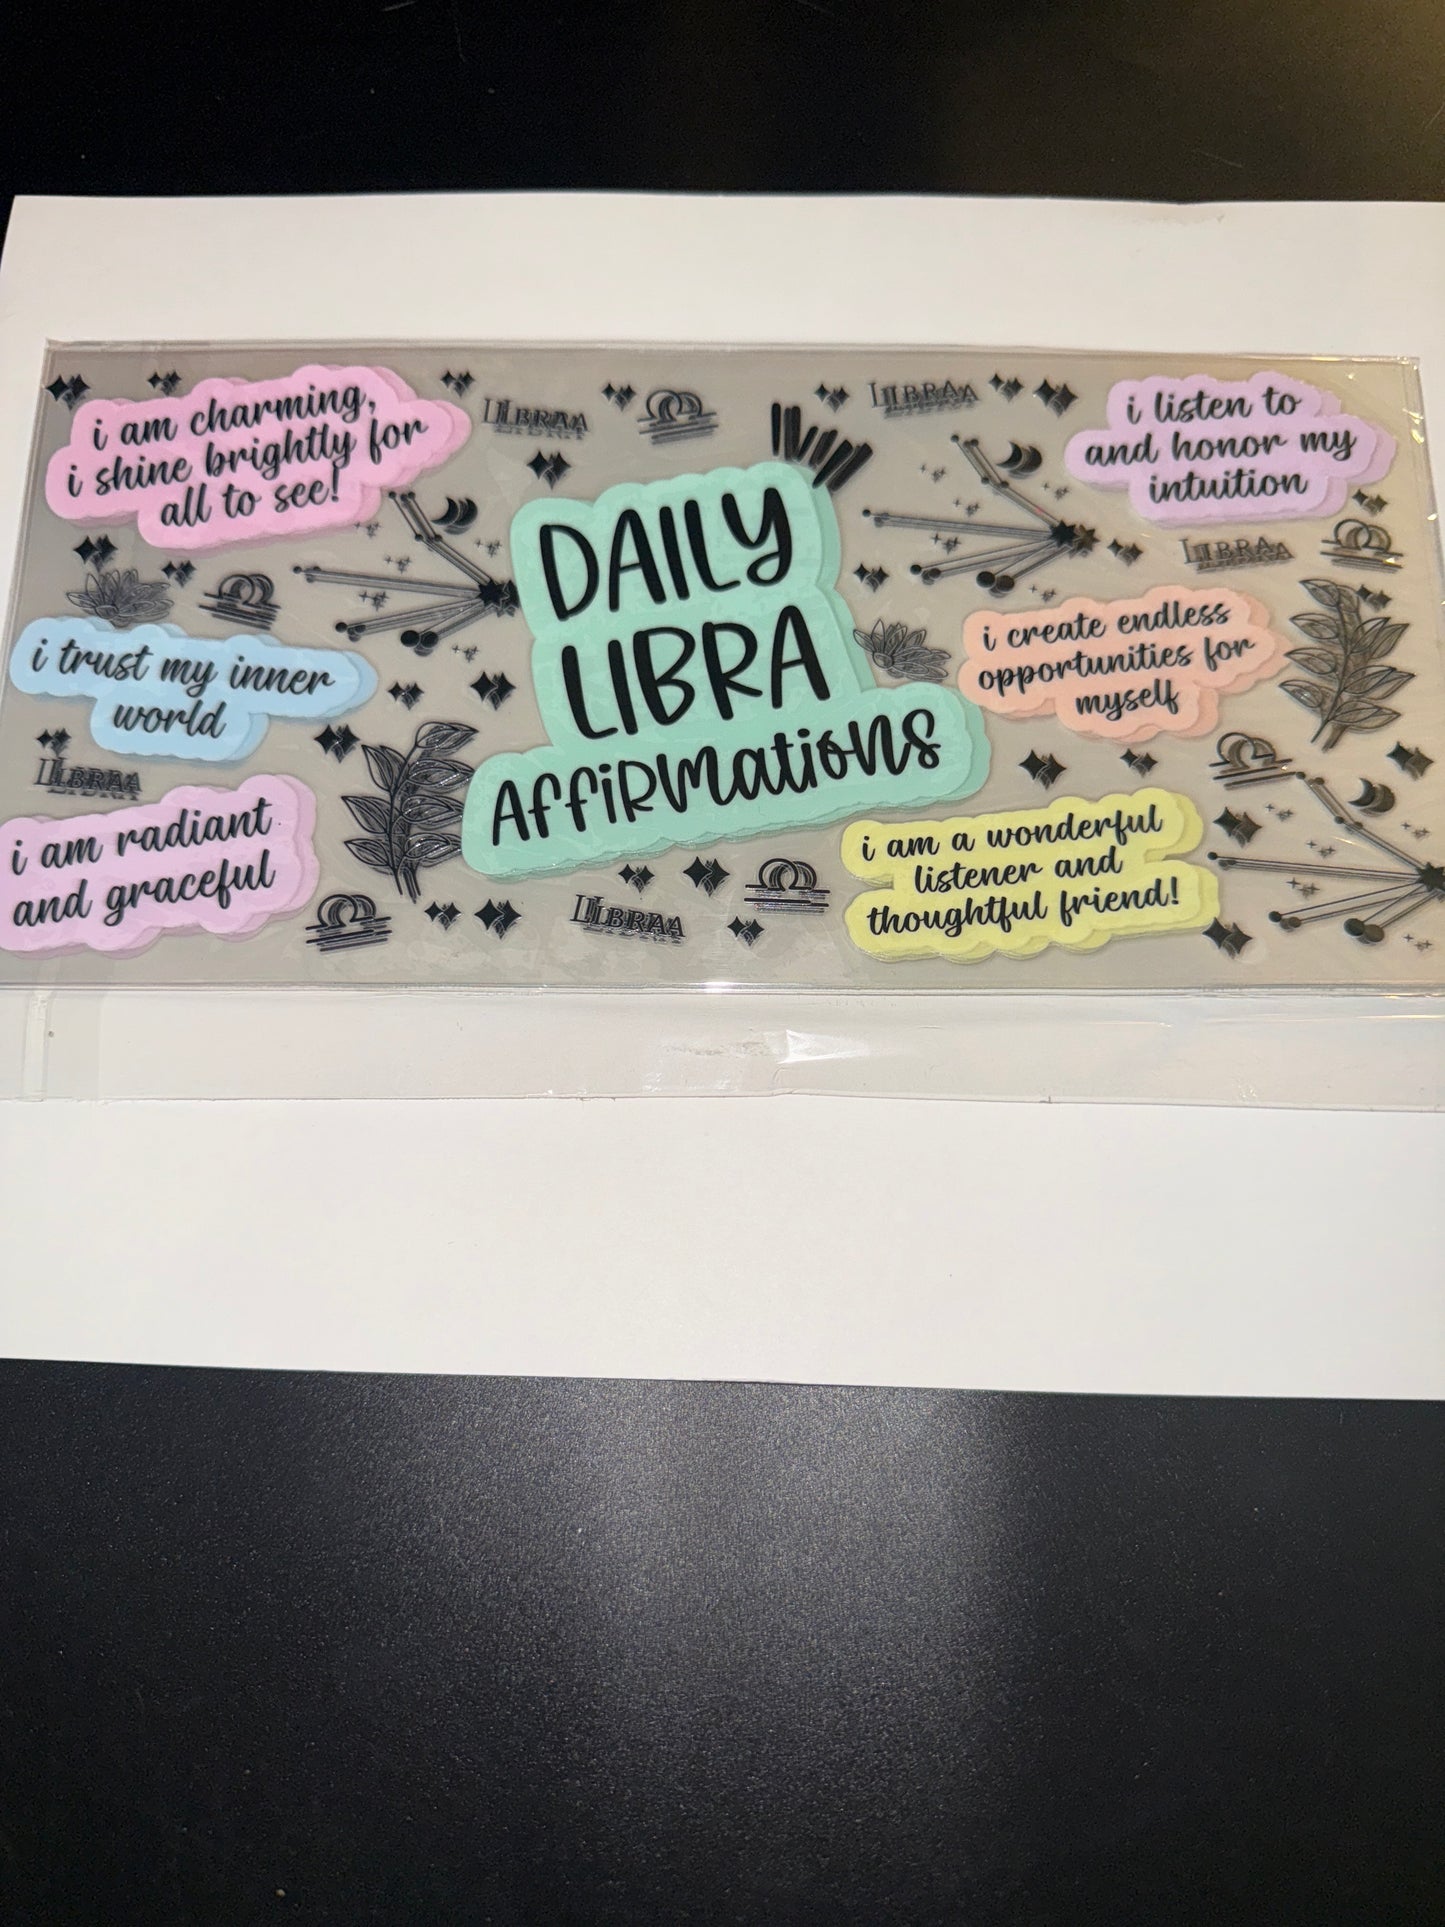 i am charming,
i shine brightly for
all to see!
LIBRA
LIBRA
i listen to
and honor my
intuition
DAILY
LIBRA
AFFiRMatioNS
LIBRA
i trust my inner
world
i create endless
opportunities for
myself
LIBRA
i am radiant
and graceful
i am a wonderful
listener and
thoughtful friend!
LIBRA